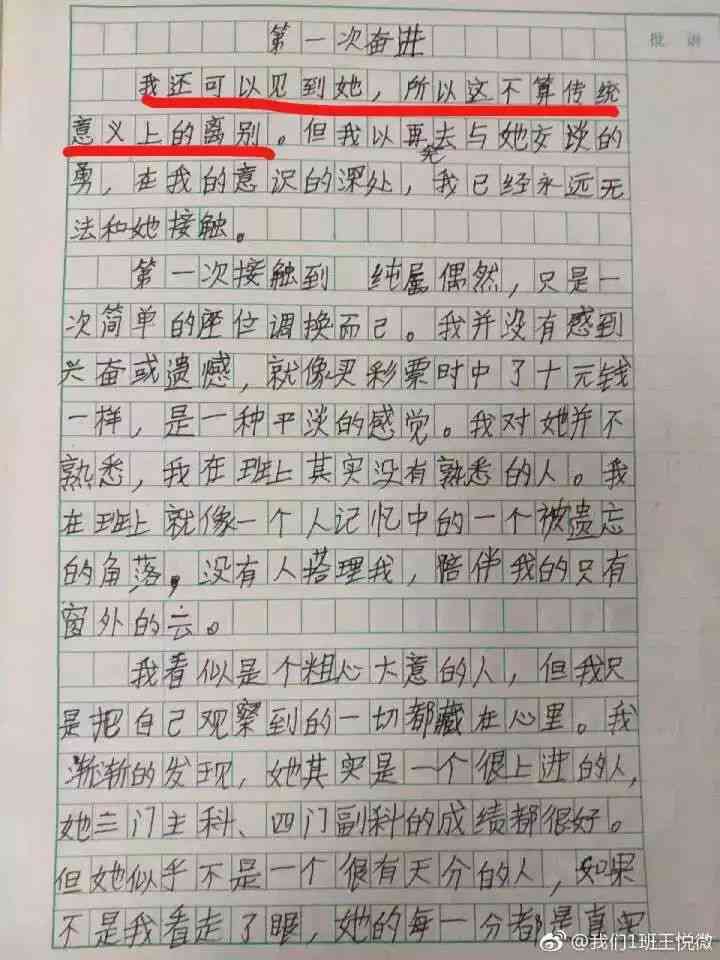 批语
第一次奋进
我还可以见到她，所以这不算传统
意义上的离别。但我以再去与她交谈的
勇，在我的意识的深处，我已经永远无
法和她接触。
第一次接触到 纯属偶然，只是一
次简单的座位调换而己。我并没有感到
兴奋或遗憾，就像买彩票时中了十元钱
一样，是一种平淡的感觉。我对她并不
熟悉，我在班上其实没有熟悉的人。我
在班上就像一个人记忆中的一个被遗忘
的角落，没有人搭理我，陪伴我的只有
窗外的云。
我看似是个粗心大意的人，但我只
是把自己观察到的一切都藏在心里。我
渐渐的发现，她其实是一个很上进的人，
她三门主科、四门副科的成绩都很好。
但她似乎不是一个很有天分的人，如果
不是我看走了眼，她的每一分都是真实
@我们1班王悦微